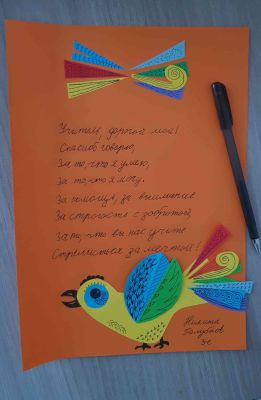 Учитель, дорогой мой!
Спасибо говорю,
За то, что я умею,
За то, что я могу.
За помощь, за внимание
За строгость с добротой,
За то, что вы нас учите
Стремиться за мечтой!
Никита
Голубков
3с